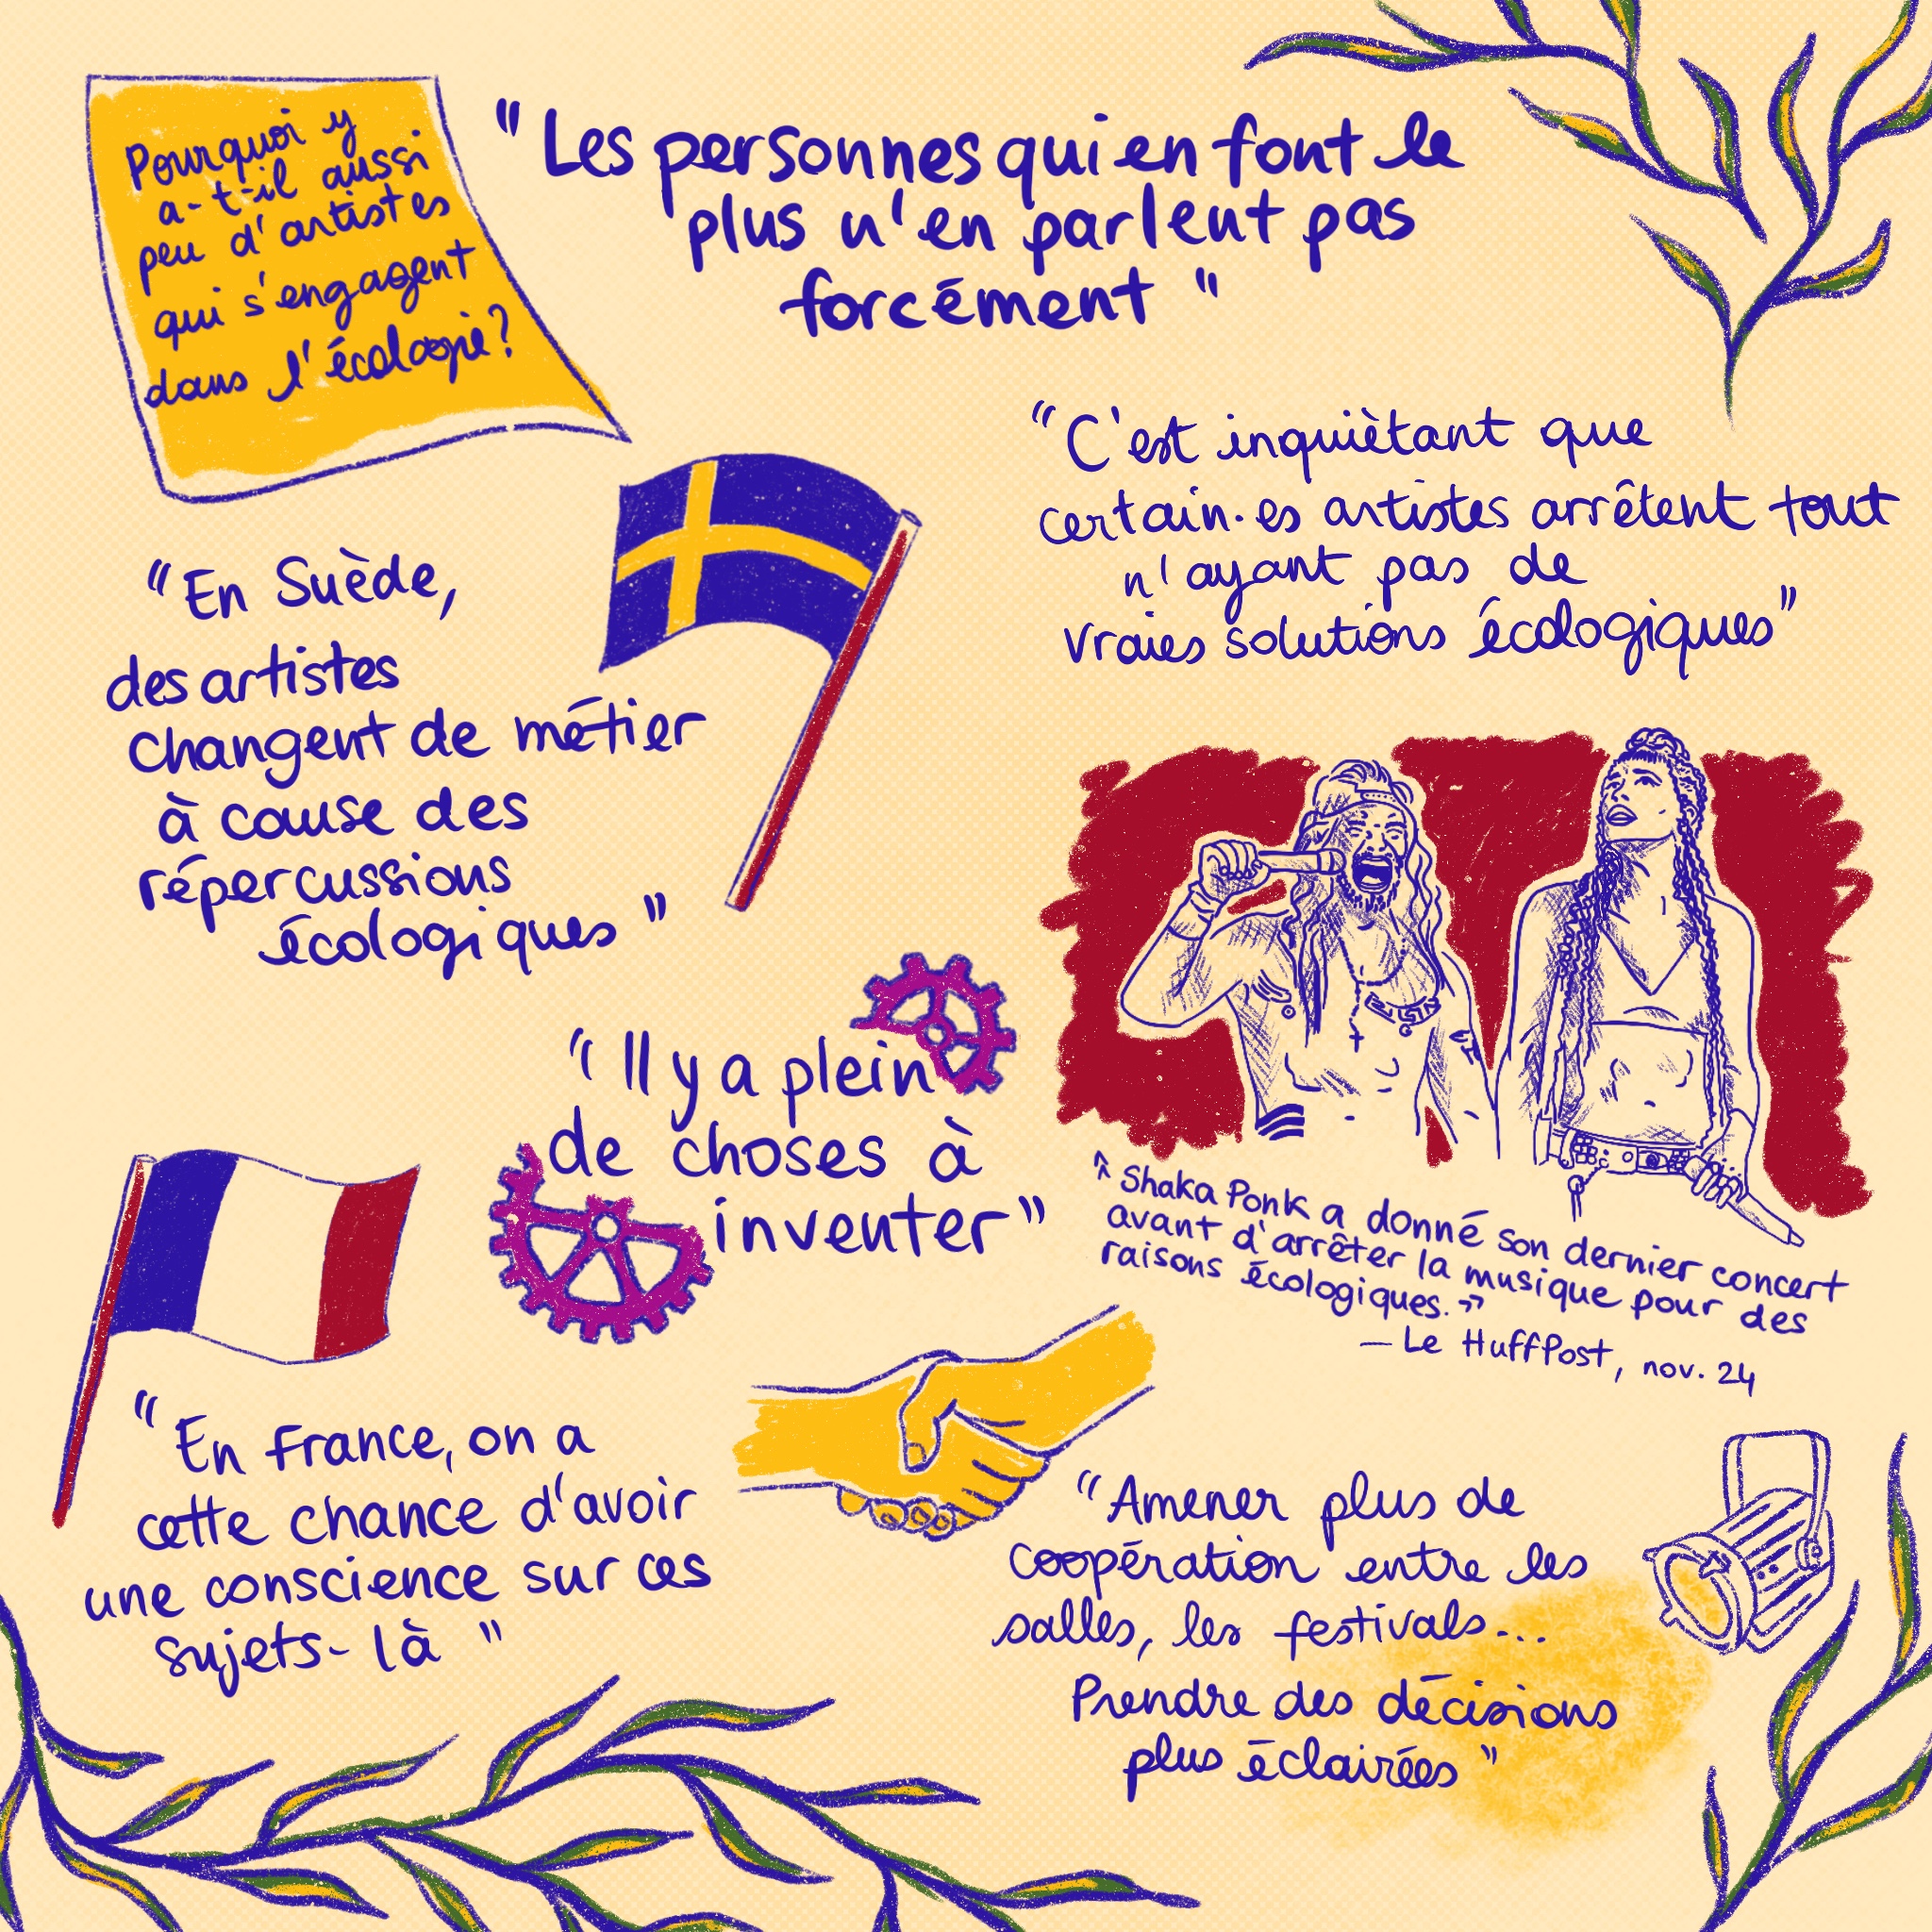 Pourquoi y
a-t-il aussi
peu d'artistes
qui s'engagent
dans l'écologie?
"Les personnes qui en font le
plus n'en parlent pas
forcément"
"C'est inquiètant que
certain·es artistes arrêtent tout
n'ayant pas de
vraies solutions écologiques"
"En Suède,
des artistes
changent de métier
à cause des
répercussions
écologiques"
"Il y a plein
de choses à
inventer"
«Shaka Ponk a donné son dernier concert
avant d'arrêter la musique pour des
raisons écologiques.»
— Le HuffPost, nov. 24
"En France, on a
cette chance d'avoir
une conscience sur ces
sujets-là"
"Amener plus de
coopération entre les
salles, les festivals...
Prendre des décisions
plus éclairées"